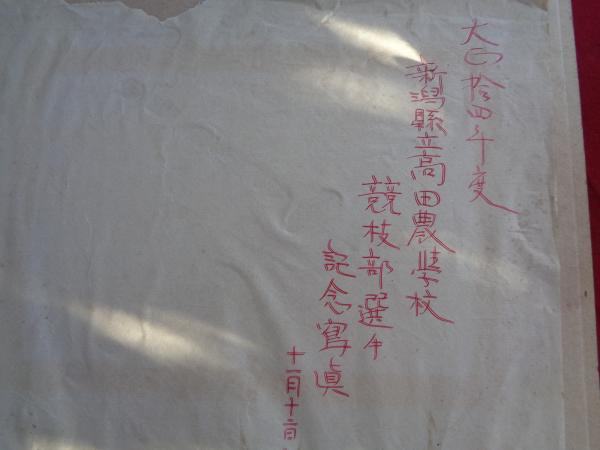 大正拾四年度
新潟縣立高田農學校
競技部選手
記念寫眞
十一月十二日